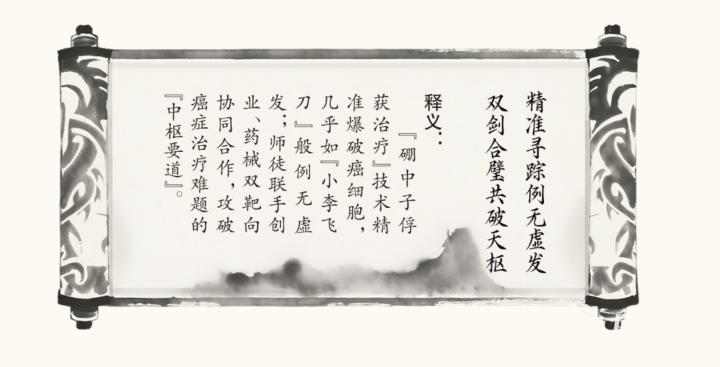 精准寻踪例无虚发
双剑合璧共破天枢
释义：
『硼中子俘
获治疗』技术精
准爆破癌细胞，
几乎如『小李飞
刀』一般例无虚
发；师徒联手创
业、药械双靶向
协同合作，攻破
癌症治疗难题的
『中枢要道』。